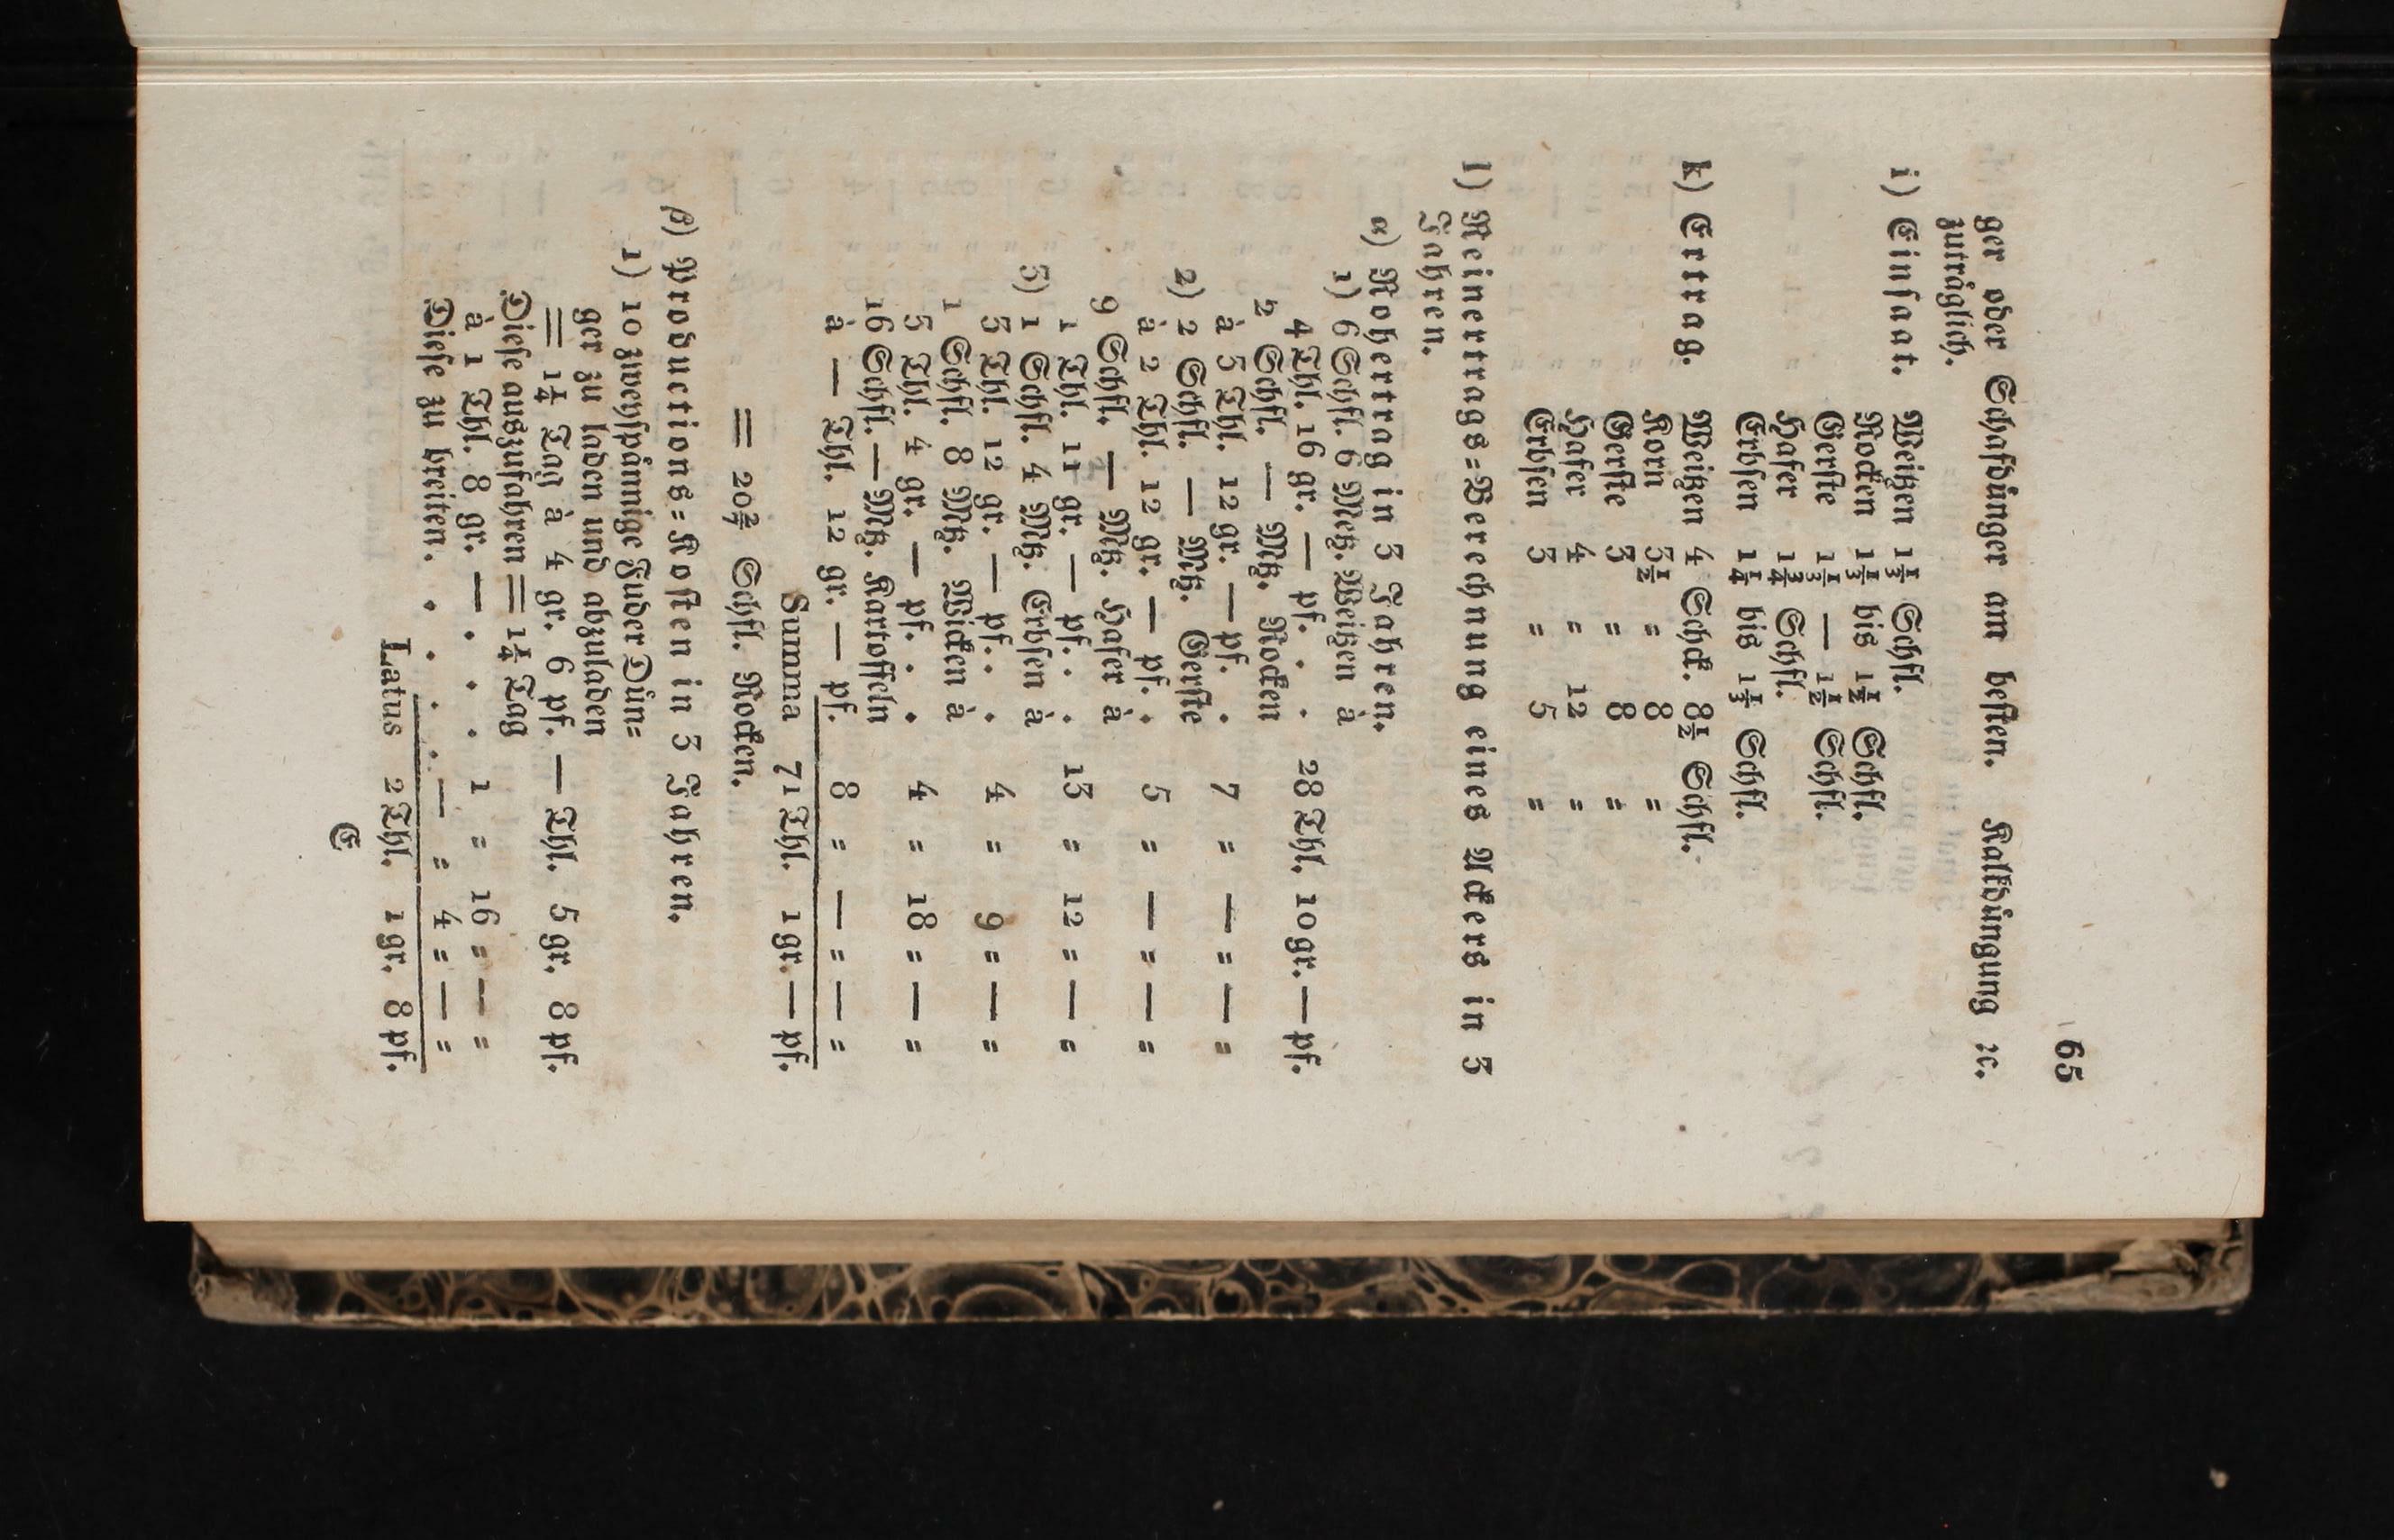 65
ger oder Schafdünger am besten. Kalkdüngung ꝛc.
zuträglich.
i) Einsaat. Weitzen 1⅓ Schfl.
Rocken 1⅓ bis 1½ Schfl.
Gerste 1⅓ — 1½ Schfl.
Hafer 1¾ Schfl.
Erbsen 1¼ bis 1⅓ Schfl.
k) Ertrag. Weitzen 4 Schck. 8½ Schfl.
Korn 3½ = 8 =
Gerste 3 = 8 =
Hafer 4 = 12 =
Erbsen 3 = 5 =
l) Reinertrags=Berechnung eines Ackers in 3
Jahren.
α) Rohertrag in 3 Jahren.
1) 6 Schfl. 6 Metz. Weitzen à
4 Thl. 16 gr. — pf. . . 28 Thl. 10 gr. — pf.
2 Schfl. — Mtz. Rocken
à 3 Thl. 12 gr. — pf. . 7 = — = — =
2) 2 Schfl. — Mtz. Gerste
à 2 Thl. 12 gr. — pf. . 5 = — = — =
9 Schfl. — Mtz. Hafer à
1 Thl. 11 gr. — pf. . . 13 = 12 = — =
3) 1 Schfl. 4 Mtz. Erbsen à
3 Thl. 12 gr. — pf. . . 4 = 9 = — =
1 Schfl. 8 Mtz. Wicken à
3 Thl. 4 gr. — pf. . . 4 = 18 = — =
16 Schfl. — Mtz. Kartoffeln
à — Thl. 12 gr. — pf. 8 = — = — =
Summa 71 Thl. 1 gr. — pf.
= 20²⁄₇ Schfl. Rocken.
β) Productions=Kosten in 3 Jahren.
1) 10 zweyspännige Fuder Dün=
ger zu laden und abzuladen
= 1¼ Tag à 4 gr. 6 pf. — Thl. 5 gr. 8 pf.
Diese auszufahren = 1¼ Tag
à 1 Thl. 8 gr. — . . . 1 = 16 = — =
Diese zu breiten. . . . . — = 4 = — =
Latus 2 Thl. 1 gr. 8 pf.
E